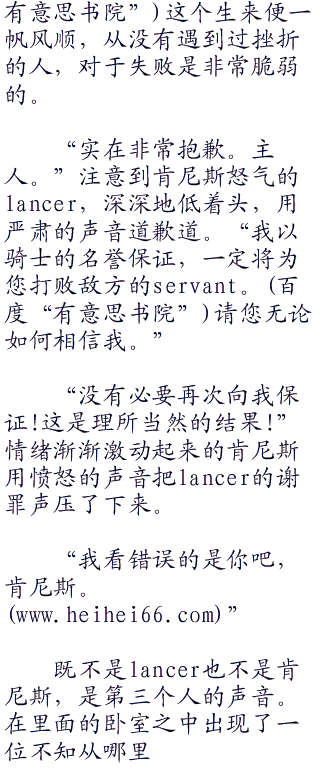 有意思书院”)这个生来便一
帆风顺，从没有遇到过挫折
的人，对于失败是非常脆弱
的。
“实在非常抱歉。主
人。”注意到肯尼斯怒气的
lancer，深深地低着头，用
严肃的声音道歉道。“我以
骑士的名誉保证，一定将为
您打败敌方的servant。(百
度“有意思书院”)请您无论
如何相信我。”
“没有必要再次向我保
证!这是理所当然的结果!”
情绪渐渐激动起来的肯尼斯
用愤怒的声音把lancer的谢
罪声压了下来。
“我看错误的是你吧，
肯尼斯。
(www.heihei66.com)”
既不是lancer也不是肯
尼斯，是第三个人的声音。
在里面的卧室之中出现了一
位不知从哪里